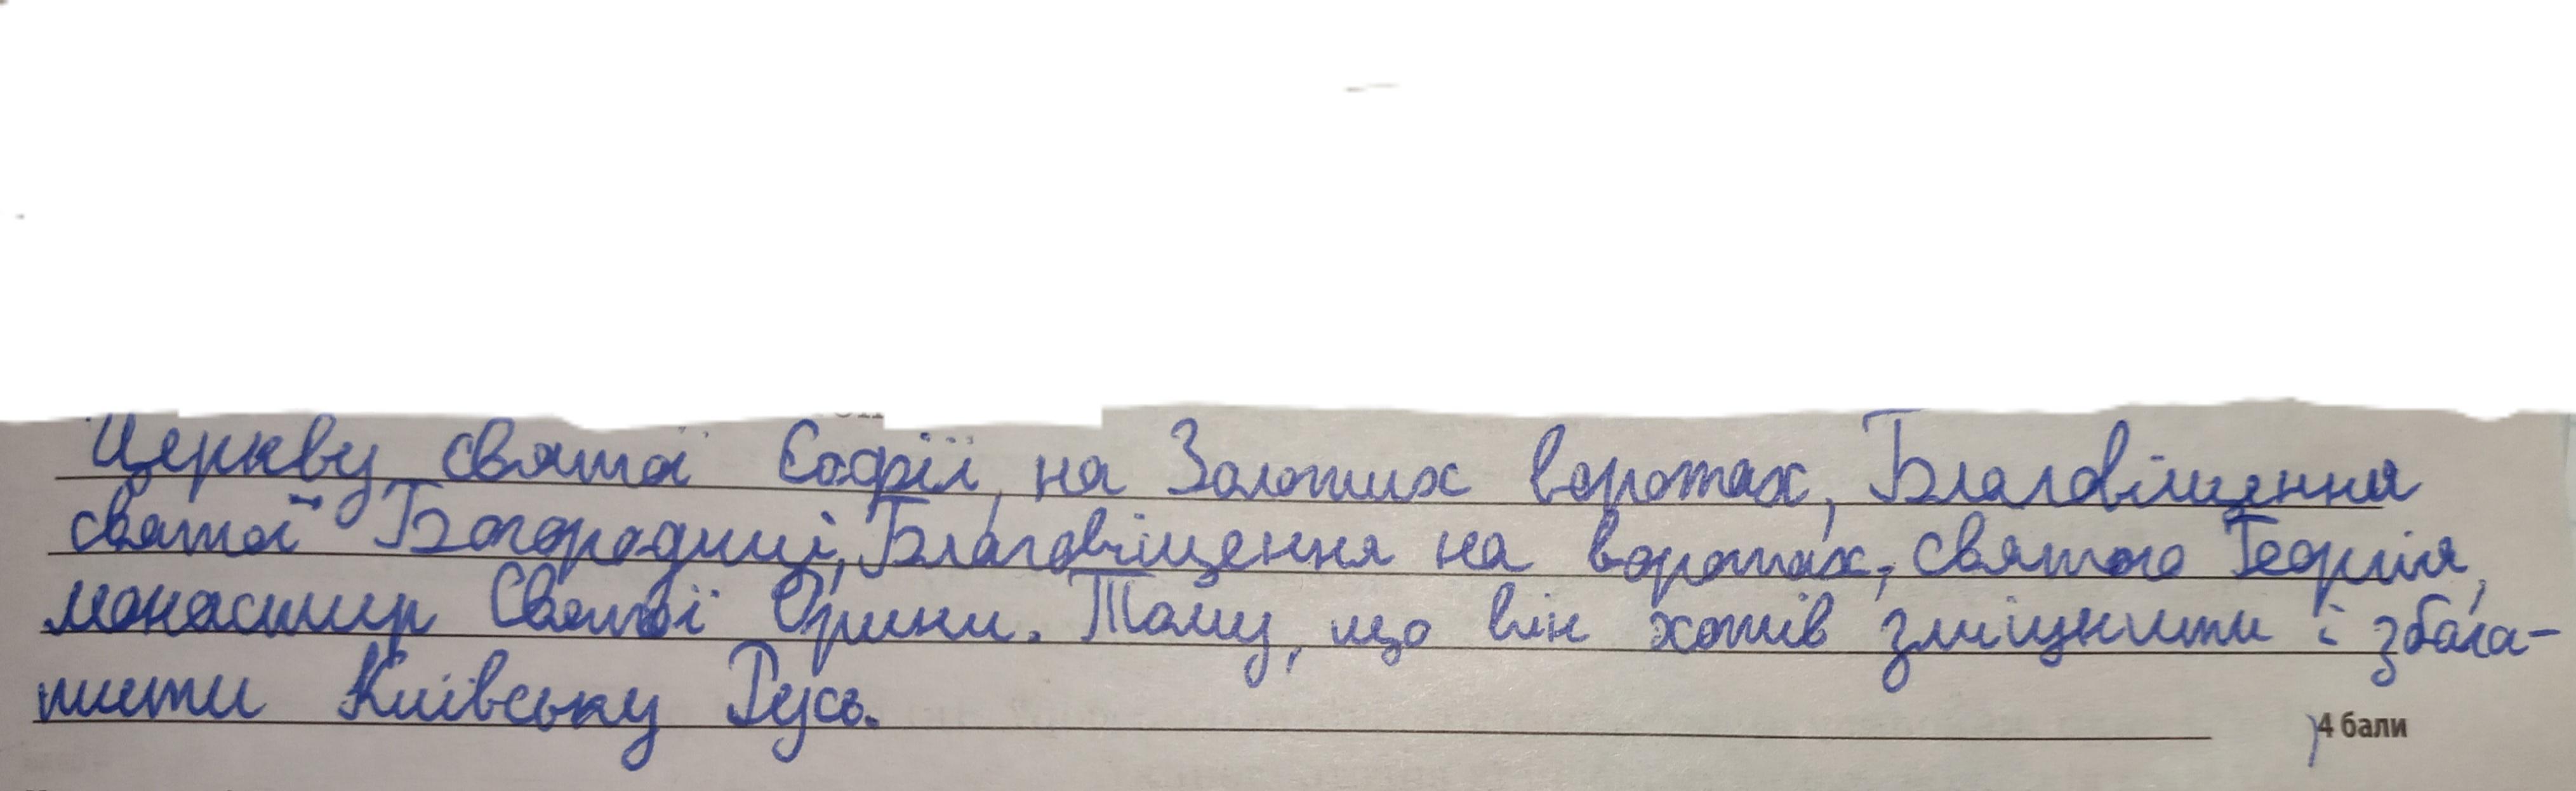 Церкву святої Софії, на Золотих воротах, Благовіщення
святої Богородиці, Благовіщення на воротах, святого Георгія,
монастир Святої Орини. Тому, що він хотів зміцнити і збага-
тити Київську Русь.
4 бали